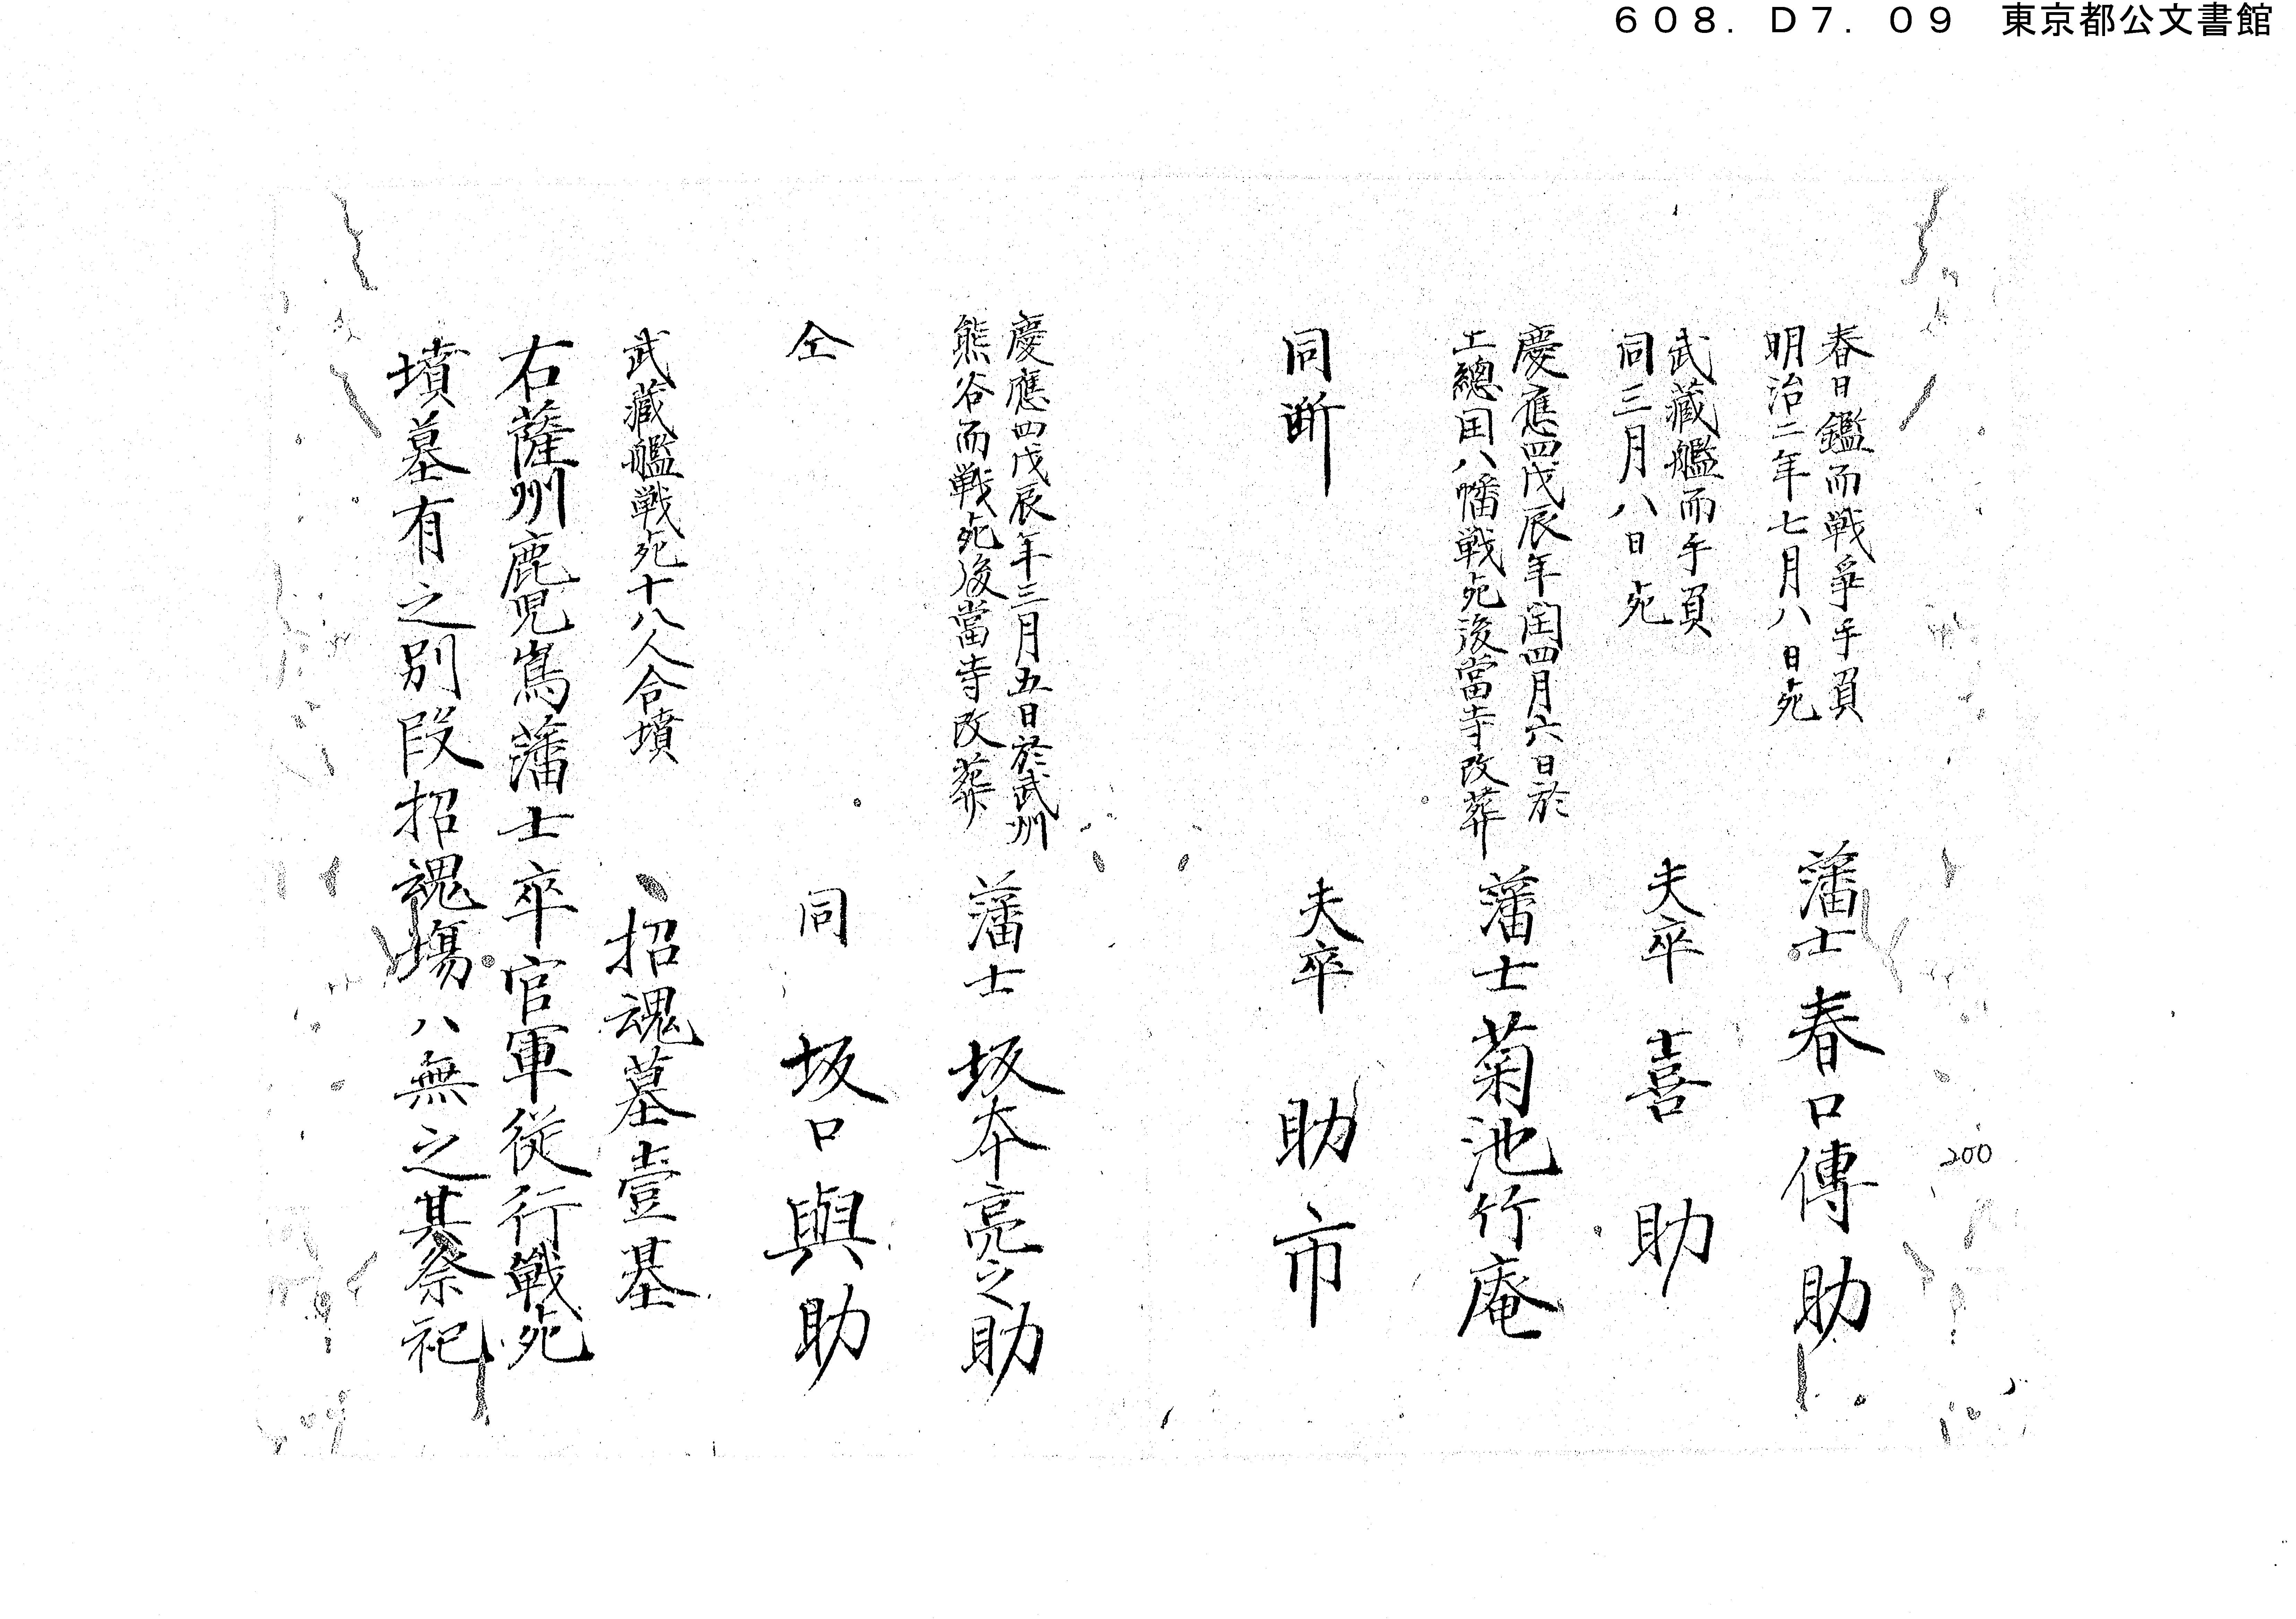 ６０８．Ｄ７．０９　東京都公文書館
春日鑑而戦争手負
明治二年七月八日死
藩士 春口傳助
武蔵艦而手負
同三月八日死
夫卒 喜助
慶應四戊辰年閏四月六日於
上總国八幡戦死後當寺改葬
藩士 菊池竹庵
同断
夫卒 助市
慶應四戊辰年三月五日於武州
熊谷而戦死後當寺改葬
藩士 坂本亮之助
仝
同 坂口與助
武蔵艦戦死十八人合墳
招魂墓壹基
右薩州鹿児嶌藩士卒官軍従行戦死
墳墓有之別段招魂塲ハ無之其祭祀
200